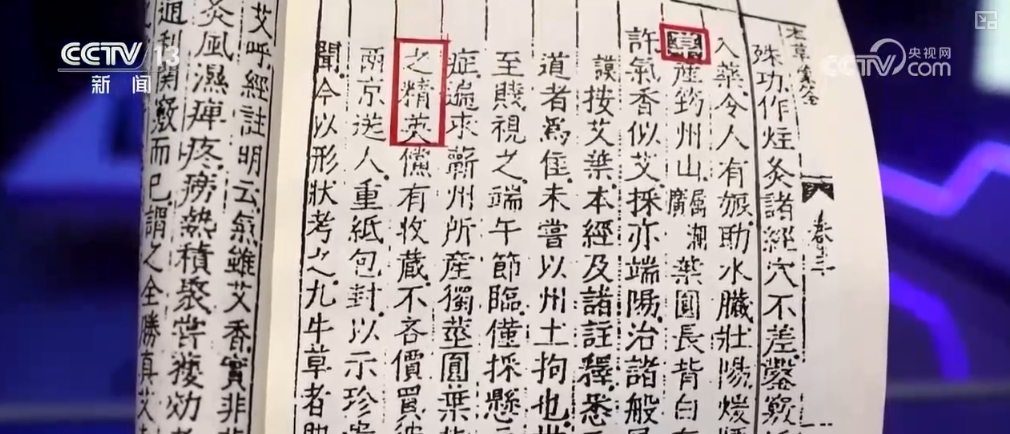 CCTV 13
新闻
央视网
CCTV com
本草蒙筌
卷之三
殊功作炷灸諸經穴不差鑿竅
入藥令人有娠助水臟壯陽煖
產筠州山屬湖廣葉圓長背白
許氣香似艾採亦端陽治諸般
謨按艾葉本經及諸註釋悉
道者為佳未嘗以州土拘也
至賤視之端午節臨僅採懸
症遍求蘄州所產獨莖圓葉
之精英儻有收藏不吝價買
兩京送人重紙包封以示珍
聞今以形狀考之九牛草者
艾呼經註明云氣雖艾香實非
灸風濕痺疼瘀熱積聚嘗獲効
週利關竅而已謂之全勝真艾